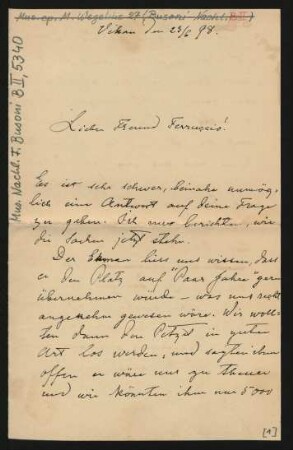 Mus. ep. M. Wegelius 27 (Busoni-Nachl. B II)
Mus. Nachl. F. Busoni B II, 5340
Vikan den 23/6 98.
Lieber Freund Ferruccio!
Es ist sehr schwer, beinahe unmög-
lich eine Antwort auf deine Frage
zu geben. Ich muss berichten, wie
die Sachen jetzt stehn.
Der Ekman liess uns wissen, dass
er den Platz auf "Paar Jahre" gern
übernehmen würde – was uns nicht
angenehm gewesen wäre. Wir woll-
ten dann den Petzet in guter
Art los werden, und sagten ihm
offen er wäre uns zu theuer
und wir könnten ihm nur 5000
[1]